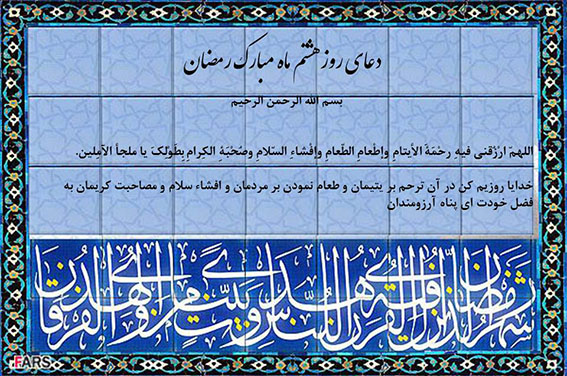 دعای روز هشتم ماه مبارک رمضان
بسم الله الرحمن الرحیم
اللهمّ ارْزُقنی فیهِ رحْمَةَ الأیتامِ وإطْعامِ الطّعامِ وإفْشاءِ السّلامِ وصُحْبَةِ الکِرامِ بِطَوْلِکَ یا ملجأ الآمِلین.
خدایا روزیم کن در آن ترحم بر یتیمان و طعام نمودن بر مردمان و افشاء سلام و مصاحبت کریمان به
فضل خودت ای پناه آرزومندان
شهر رمضان الذی انزل فیه القرآن هدی للناس و بینات من الهدی و الفرقان
FARS